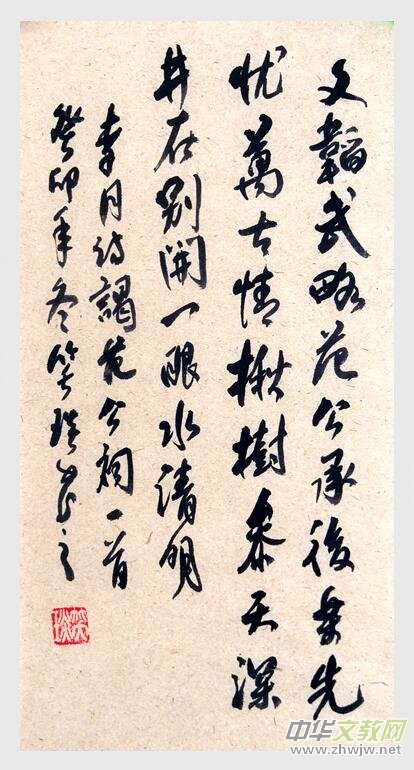 文韜武略范公承後樂先
忧萬古情楸樹參天深
井在別開一眼水清明
李月诗謁范公祠一首
癸卯年冬書之
中华文教网
www.zhwjw.net